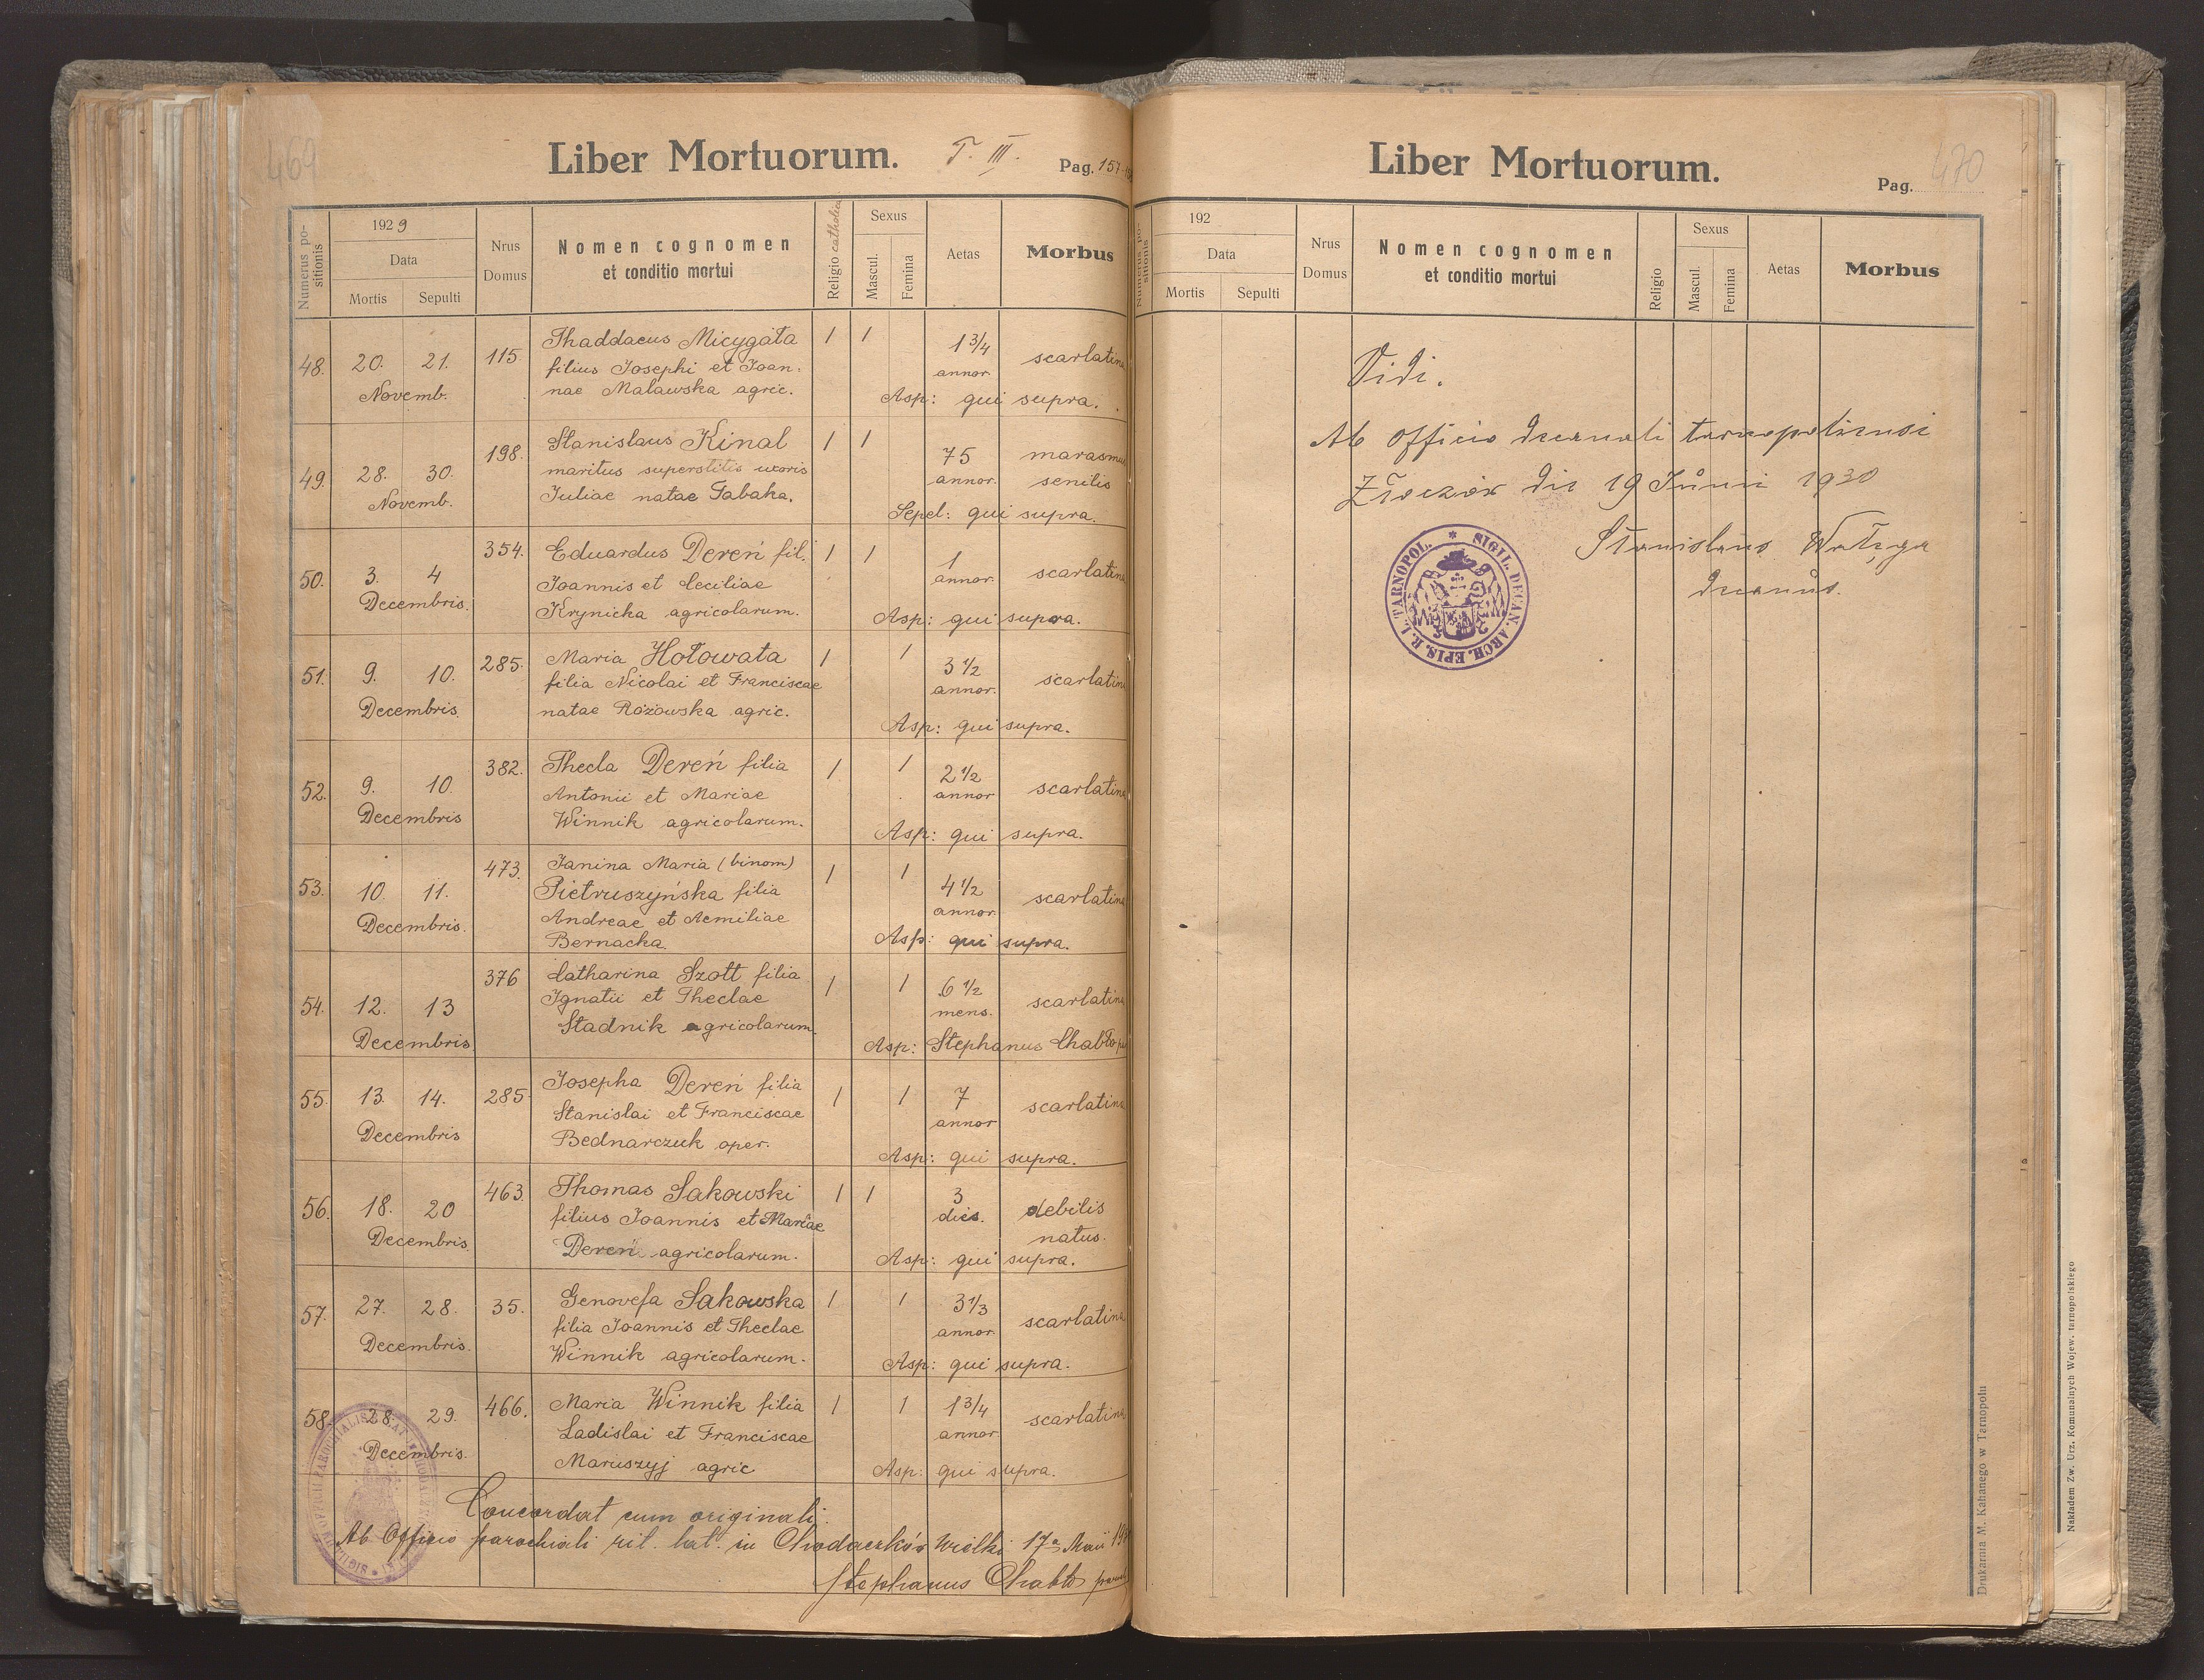 469
Liber Mortuorum. T. III. Pag. 157-
Numerus positionis
1929
Data
Mortis Sepulti
Nrus Domus
Nomen cognomen
et conditio mortui
Religio catholica
Sexus
Mascul. Femina
Aetas
Morbus
48. 20. 21. Novemb. 115
Thaddaeus Micygała
filius Josephi et Joan-
nae Malawska agric.
1 1 1 3/4 annor. scarlatina
Asp: qui supra.
49. 28. 30. Novemb. 198.
Stanislaus Kinal
maritus superstitis uxoris
Juliae natae Tabaka.
1 1 75 annor. marasmus
senilis
Sepel: qui supra.
50. 3. 4 Decembris. 354.
Eduardus Dereń fil.
Joannis et Ceciliae
Krynicka agricolarum.
1 1 1 annor. scarlatina
Asp: qui supra.
51. 9. 10. Decembris. 285.
Maria Hołowata
filia Nicolai et Franciscae
natae Rożowska agric.
1 1 3 1/2 annor. scarlatina
Asp: qui supra.
52. 9. 10. Decembris 382.
Thecla Dereń filia
Antonii et Mariae
Winnik agricolarum.
1 1 2 1/2 annor scarlatina
Asp: qui supra.
53. 10. 11. Decembris. 473.
Janina Maria (binom)
Pietruszyńska filia
Andreae et Aemiliae
Bernacka
1 1 4 1/2 annor. scarlatina
Asp: qui supra.
54. 12. 13 Decembris 376
Catharina Szott filia
Ignatii et Theclae
Stadnik agricolarum.
1 1 6 1/2 mens. scarlatina
Asp: Stephanus Chabło
55. 13. 14. Decembris 285.
Josepha Dereń filia
Stanislai et Franciscae
Bednarczuk oper.
1 1 7 annor scarlatina
Asp: qui supra.
56. 18. 20 Decembris. 463.
Thomas Sakowski
filius Joannis et Mariae
Dereń agricolarum.
1 1 3 dies. debilis
natus.
Asp: qui supra.
57. 27. 28. Decembris. 35.
Genovefa Sakowska
filia Joannis et Theclae
Winnik agricolarum.
1 1 3 1/3 annor. scarlatina
Asp: qui supra.
58. 28. 29. Decembris. 466.
Maria Winnik filia
Ladislai et Franciscae
Maruszyj agric
1 1 1 3/4 annor. scarlatina
Asp: qui supra.
Concordat cum originali.
Ab Officio parochiali rit. lat. in Chodaczków Wielki 17a Maii
Stephanus Chabło
470
Liber Mortuorum.
Pag.
Numerus positionis
192
Data
Mortis Sepulti
Nrus Domus
Nomen cognomen
et conditio mortui
Religio
Sexus
Mascul. Femina
Aetas
Morbus
Vidi.
Ab officio decanali tarnopoliensi
die 19 Junii 1930
Stanislaus Wałęga
decanus.
* SIGIL. DECAN. ARCH. EPIS. R. L. TARNOPOL.
Drukarnia M. Kahanego w Tarnopolu
Nakładem Zw. Urz. Komunalnych Wojew. tarnopolskiego